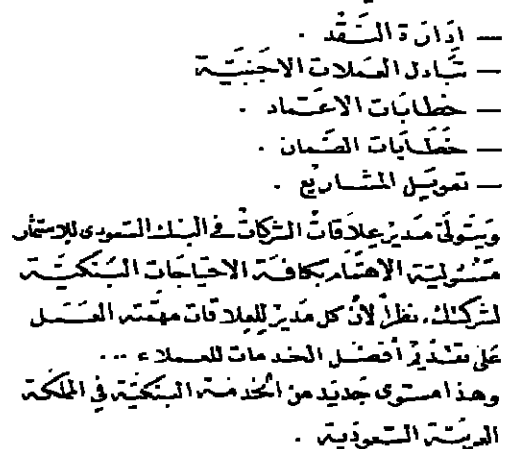 — إدارة النقد .
— تبادل العملات الاجنبية
— خطابات الاعتماد .
— خطابات الضمان .
— تمويل المشاريع .
ويتولى مدير علاقات الشركات في البنك السعودى للإستثمار
مسئولية الاهتمام بكافة الاحتياجات البنكية
لشركتك، نظراً لأن كل مدير للعلاقات مهمته العمل
على تقديم أفضل الخدمات للعملاء ...
وهذا مستوى جديد من الخدمة البنكية في المملكة
العربية السعودية .